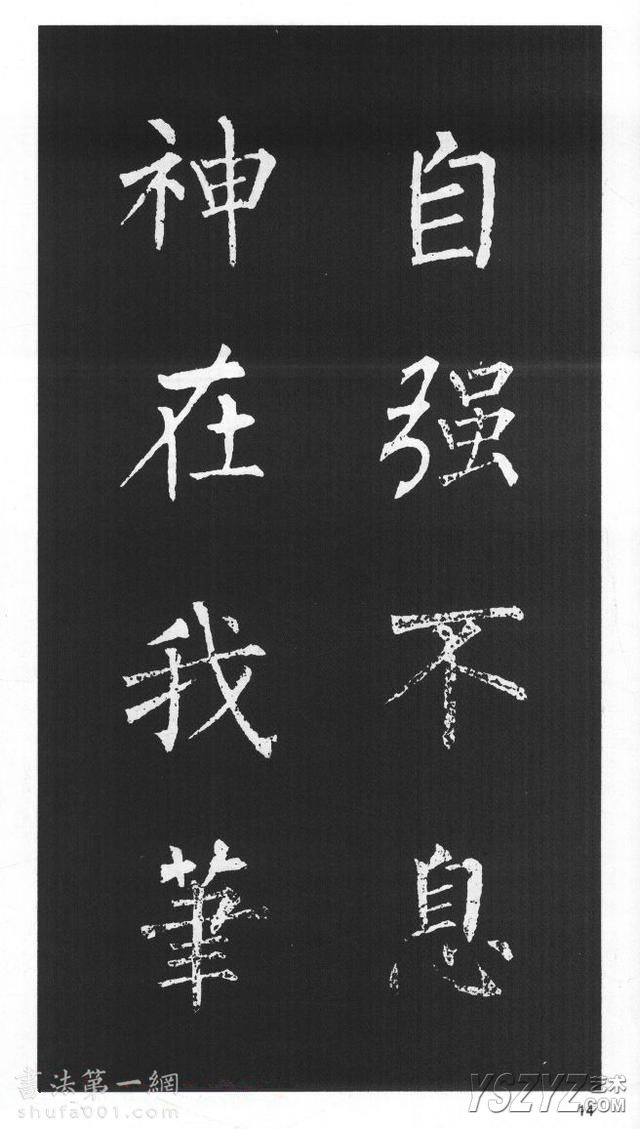 自强不息
神在我筆
書法第一網
shufa001.com
YSZYZ艺术
.COM
14